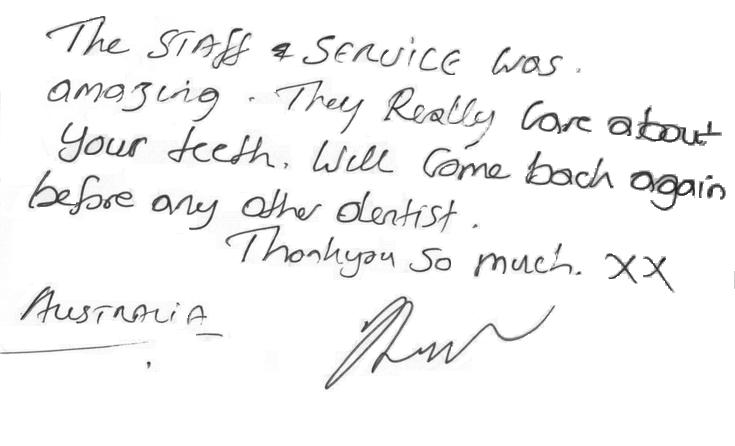 The STAFF & SERVICE was.
amazing. They Really Care about
Your teeth. Will Come back again
before any other dentist.
Thankyou so much. XX
AUSTRALIA